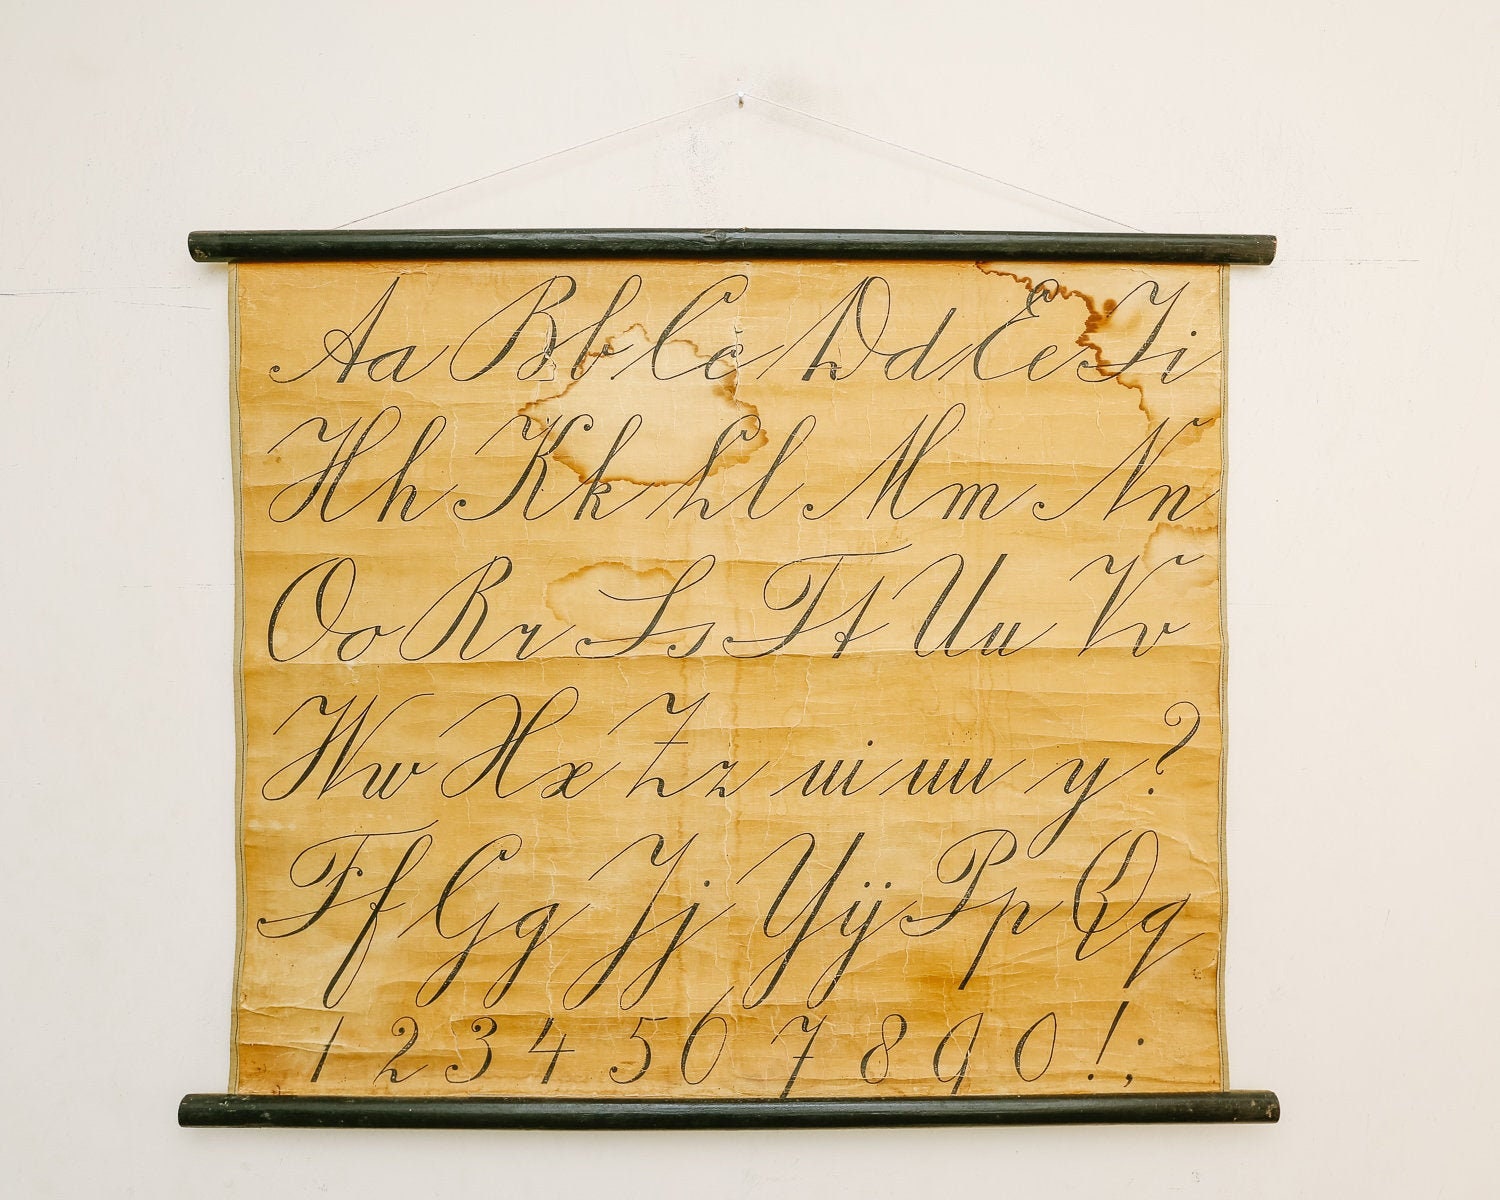 Aa Bb Cc Dd Ee Ii
Hh Kk Ll Mm Nn
Oo Rr Ss Tt Uu Vv
Ww Xx Zz ui uu y?
Ff Gg Jj Yÿ Pp Qq
1 2 3 4 5 6 7 8 9 0 ! ;